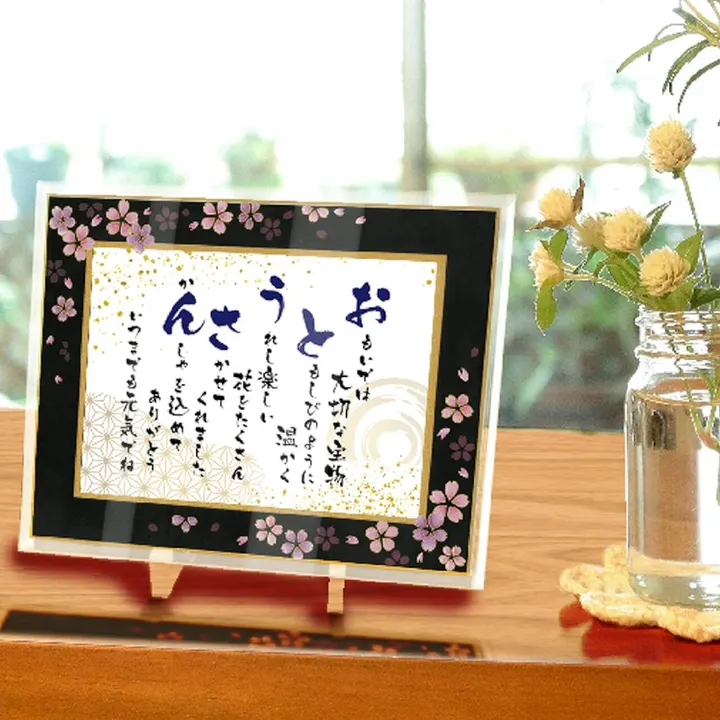 おもいでは
大切な宝物
ともしびのように
温かく
うれし楽しい
花をたくさん
さかせて
くれました
かんしゃを込めて
ありがとう
いつまでも元気でね